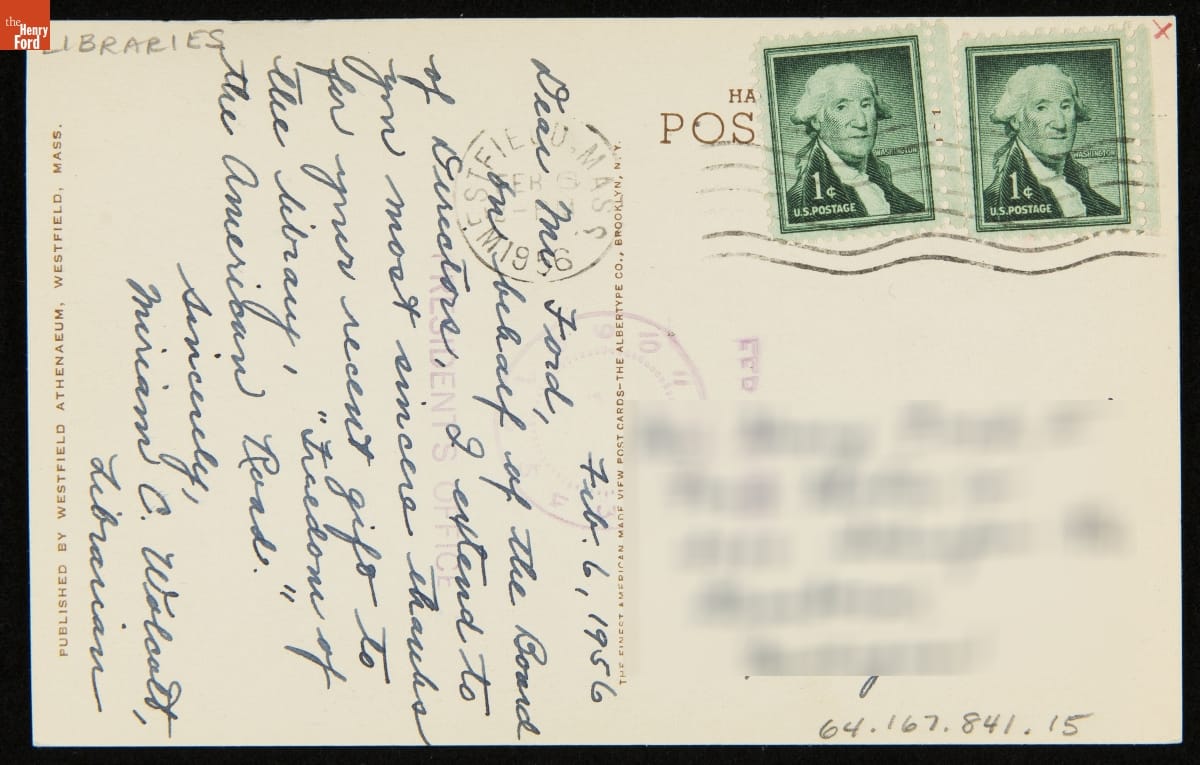 the
Henry
Ford
LIBRARIES
Feb. 6, 1956
Dear Mr. Ford,
On behalf of the Board
of Directors, I extend to
you most sincere thanks
for your recent gift to
the library, "Freedom of
the American Road."
Sincerely,
Miriam C. Wolcott,
Librarian
PUBLISHED BY WESTFIELD ATHENAEUM, WESTFIELD, MASS.
THE FINEST AMERICAN MADE VIEW POST CARDS—THE ALBERTYPE CO., BROOKLYN, N. Y.
WESTFIELD. MASS
FEB 6
1956
PRESIDENT'S OFFICE
9 10 11
4
FEB
HA
POS
WASHINGTON
1¢
U.S. POSTAGE
WASHINGTON
1¢
U.S. POSTAGE
X
64.167.841.15